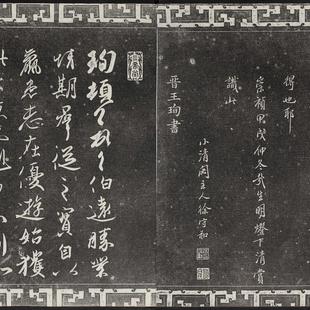 得也耶
崇禎甲戌仲冬哉生明燈下清賞
識此
小清閟主人徐守和
晉王珣書
珣頓首頓首伯遠勝業
情期群從之寶自以
羸患志在優遊始獲